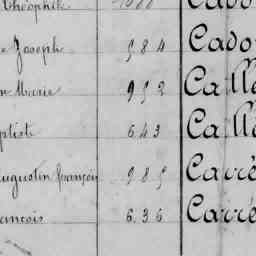 Théophile Cado
e Joseph 584 Cado
n Marie 952 Calle
ptiste 643 Calle
Augustin françois 985 Carré
ancois 636 Carré